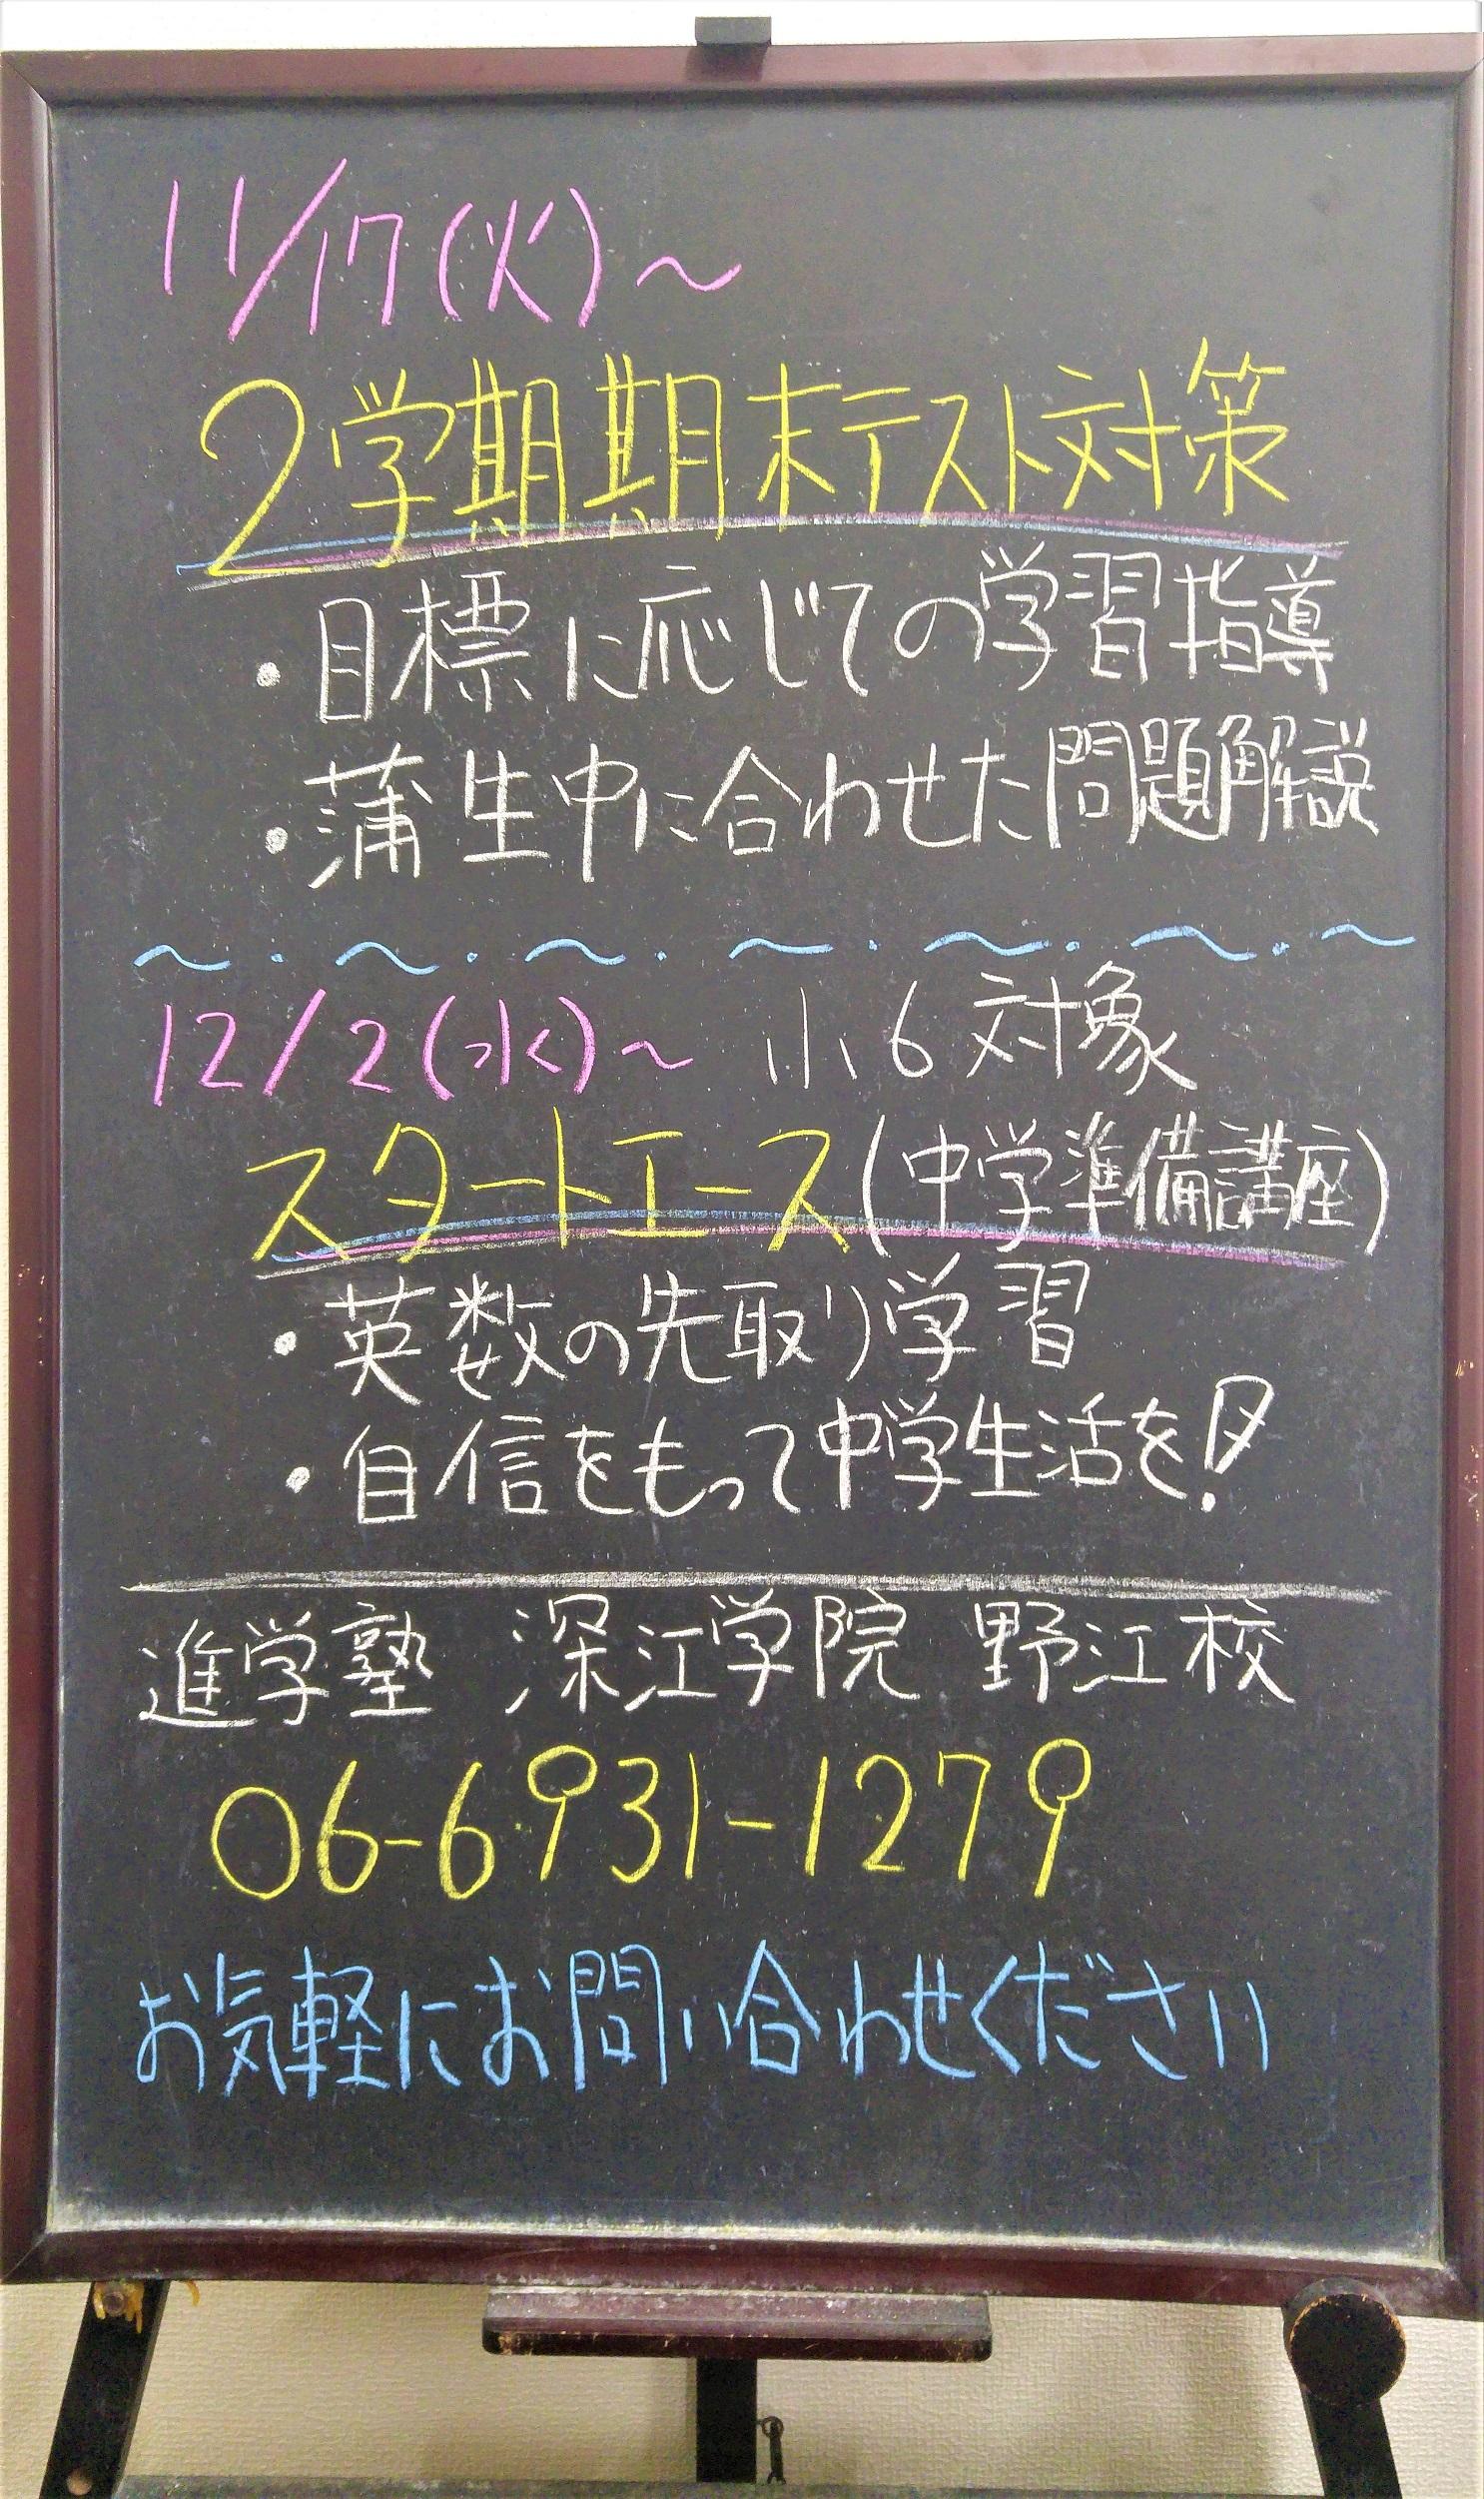 11/17(火)～
2学期期末テスト対策
・目標に応じての学習指導
・蒲生中に合わせた問題解説
～・～・～・～・～・～・～
12/2(水)～ 小6対象
スタートエース(中学準備講座)
・英数の先取り学習
・自信をもって中学生活を!
進学塾 深江学院 野江校
06-6931-1279
お気軽にお問い合わせください